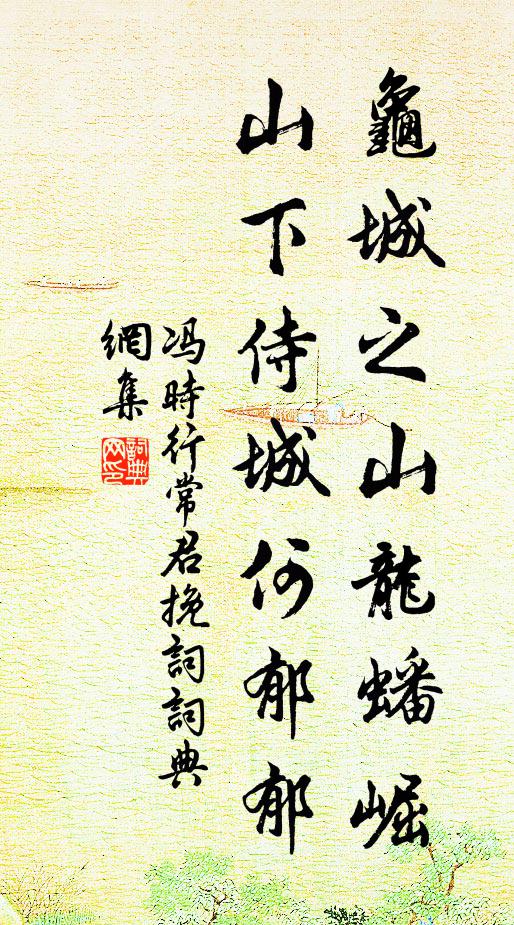 龜城之山龍蟠崛
山下侍城何郁郁
冯時行常君挽詞詞典
網集
詞典网印